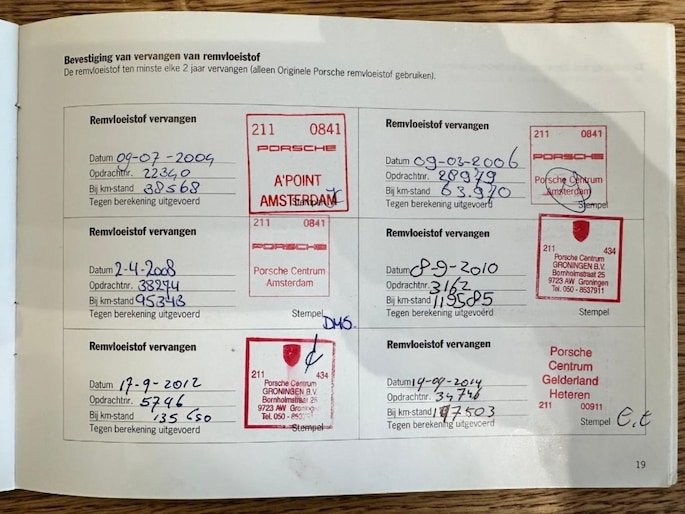 Bevestiging van vervangen van remvloeistof
De remvloeistof ten minste elke 2 jaar vervangen (alleen Originele Porsche remvloeistof gebruiken).
Remvloeistof vervangen
Datum 09-07-2004
Opdrachtnr. 22340
Bij km-stand 38568
Tegen berekening uitgevoerd
Stempel
211 0841
PORSCHE
A'POINT
AMSTERDAM
Remvloeistof vervangen
Datum 09-03-2006
Opdrachtnr. 28979
Bij km-stand 63.970
Tegen berekening uitgevoerd
Stempel
211 0841
PORSCHE
Porsche Centrum
Amsterdam
Remvloeistof vervangen
Datum 2-4-2008
Opdrachtnr. 38274
Bij km-stand 95343
Tegen berekening uitgevoerd
Stempel
211 0841
PORSCHE
Porsche Centrum
Amsterdam
Remvloeistof vervangen
Datum 8-9-2010
Opdrachtnr. 3162
Bij km-stand 119585
Tegen berekening uitgevoerd
Stempel
211 434
Porsche Centrum
GRONINGEN B.V.
Bornholmstraat 25
9723 AW Groningen
Tel. 050 - 8537911
Remvloeistof vervangen
Datum 17-9-2012
Opdrachtnr. 5746
Bij km-stand 135650
Tegen berekening uitgevoerd
Stempel
DMS.
211 434
Porsche Centrum
GRONINGEN B.V.
Bornholmstraat 25
9723 AW Groningen
Tel. 050 -
Remvloeistof vervangen
Datum 19-09-2014
Opdrachtnr. 34746
Bij km-stand 147503
Tegen berekening uitgevoerd
Stempel
Porsche
Centrum
Gelderland
Heteren
211 00911
19